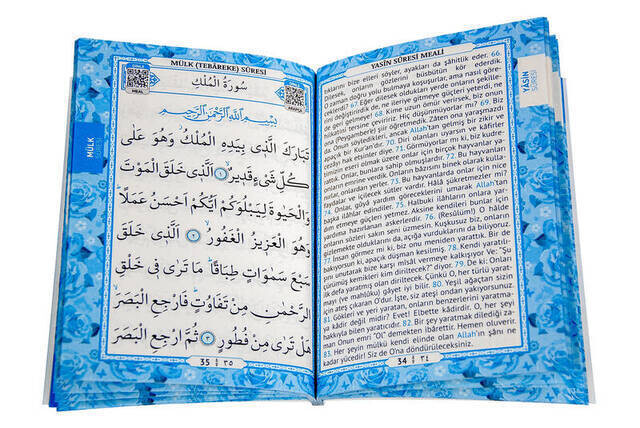 YASİN SÛRESİ MEALİ
YÂSİN
SÛRESİ
tıklarını bize elleri söyler, ayakları da şâhitlik eder. 66.
Dilesek, onların gözlerini büsbütün kör ederdik.
O zaman doğru yolu bulmaya koşuşurlar, ama nasıl göre-
ceklerdi? 67. Eğer dilesek oldukları yerde onların şekil-
lerini değiştirirdik de, ne ileriye gitmeye güçleri yeterdi, ne
de geri gelmeye! 68. Kime uzun ömür verirsek, biz onun
hilkatini tersine çeviririz. Hiç düşünmüyorlar mı? 69. Biz
ona (Peygamber'e) şiir öğretmedik. Zâten ona yaraşmazdı
da. Onun söyledikleri, ancak Allah'tan gelmiş bir zikir ve
apaçık bir Kur'an'dır. 70. Diri olanları uyarsın ve kâfirler
cezâyı hak etsinler diye. 71. Görmüyorlar mı ki, biz kudre-
timizin eseri olmak üzere onlar için birçok hayvanlar ya-
rattık. Onlar, bunlara sahip olmuşlardır. 72. Bu hayvanları
onların emrine verdik. Onların bâzısını binek olarak kulla-
nırlar, onlardan yerler. 73. Bu hayvanlarda onlar için nice
faydalar ve içilecek sütler vardır. Hâlâ şükretmezler mi?
74. Onlar, gûyâ yardım göreceklerini umarak Allah'tan
başka ilâhlar edindiler. 75. Halbuki ilâhların onlara yar-
dım etmeye güçleri yetmez. Aksine kendileri bunlar için
yardıma hazırlanan askerlerdir. 76. (Resûlüm!) O hâlde
onların sözleri sakın seni üzmesin. Kuşkusuz biz, onların
gizlemekte olduklarını da, açığa vurduklarını da biliyoruz.
77. İnsan görmez mi ki, biz onu meniden yarattık. Bir de
bakıyorsun ki, apaçık düşman kesilmiş. 78. Kendi yaratılı-
şını unutarak bize karşı misâl vermeye kalkışıyor Ve: "Şu
çürümüş kemikleri kim diriltecek?" diyor. 79. De ki: Onları
ilk defa yaratmış olan diriltecek. Çünkü O, her türlü yarat-
mayı (ve mahlûku) gâyet iyi bilir. 80. Yeşil ağaçtan sizin
için ateş çıkaran O'dur. İşte, siz ateşi ondan yakıyorsunuz.
81. Gökleri ve yeri yaratan, onların benzerlerini yaratma-
ya kâdir değil midir? Evet! Elbette kâdirdir. O, her şeyi
hakkıyla bilen yaratıcıdır. 82. Bir şey yaratmak dilediği za-
man Onun emri "Ol" demekten ibârettir. Hemen oluverir.
83. Her şeyin mülkü kendi elinde olan Allah'ın şânı ne
kadar yücedir! Siz de O'na döndürüleceksiniz.
34 ٣٤
MÜLK (TEBÂREKE) SÛRESİ
MEAL
ARAPÇA
سُورَةُ الْمُلْكِ
MÜLK
SÛRESİ
بِسْمِ اللهِ الرَّحْمٰنِ الرَّحِيمِ
تَبَارَكَ الَّذِى بِيَدِهِ الْمُلْكُ وَهُوَ عَلٰى
كُلِّ شَىْءٍ قَدِيرٌ ١ اَلَّذِى خَلَقَ الْمَوْتَ
وَالْحَيٰوةَ لِيَبْلُوَكُمْ اَيُّكُمْ اَحْسَنُ عَمَلًا
وَهُوَ الْعَزِيزُ الْغَفُورُ ٢ اَلَّذِى خَلَقَ
سَبْعَ سَمٰوَاتٍ طِبَاقًا مَا تَرٰى فِى خَلْقِ
الرَّحْمٰنِ مِنْ تَفَاوُتٍ فَارْجِعِ الْبَصَرَ
هَلْ تَرٰى مِنْ فُطُورٍ ٣ ثُمَّ ارْجِعِ الْبَصَرَ
35 ٣٥